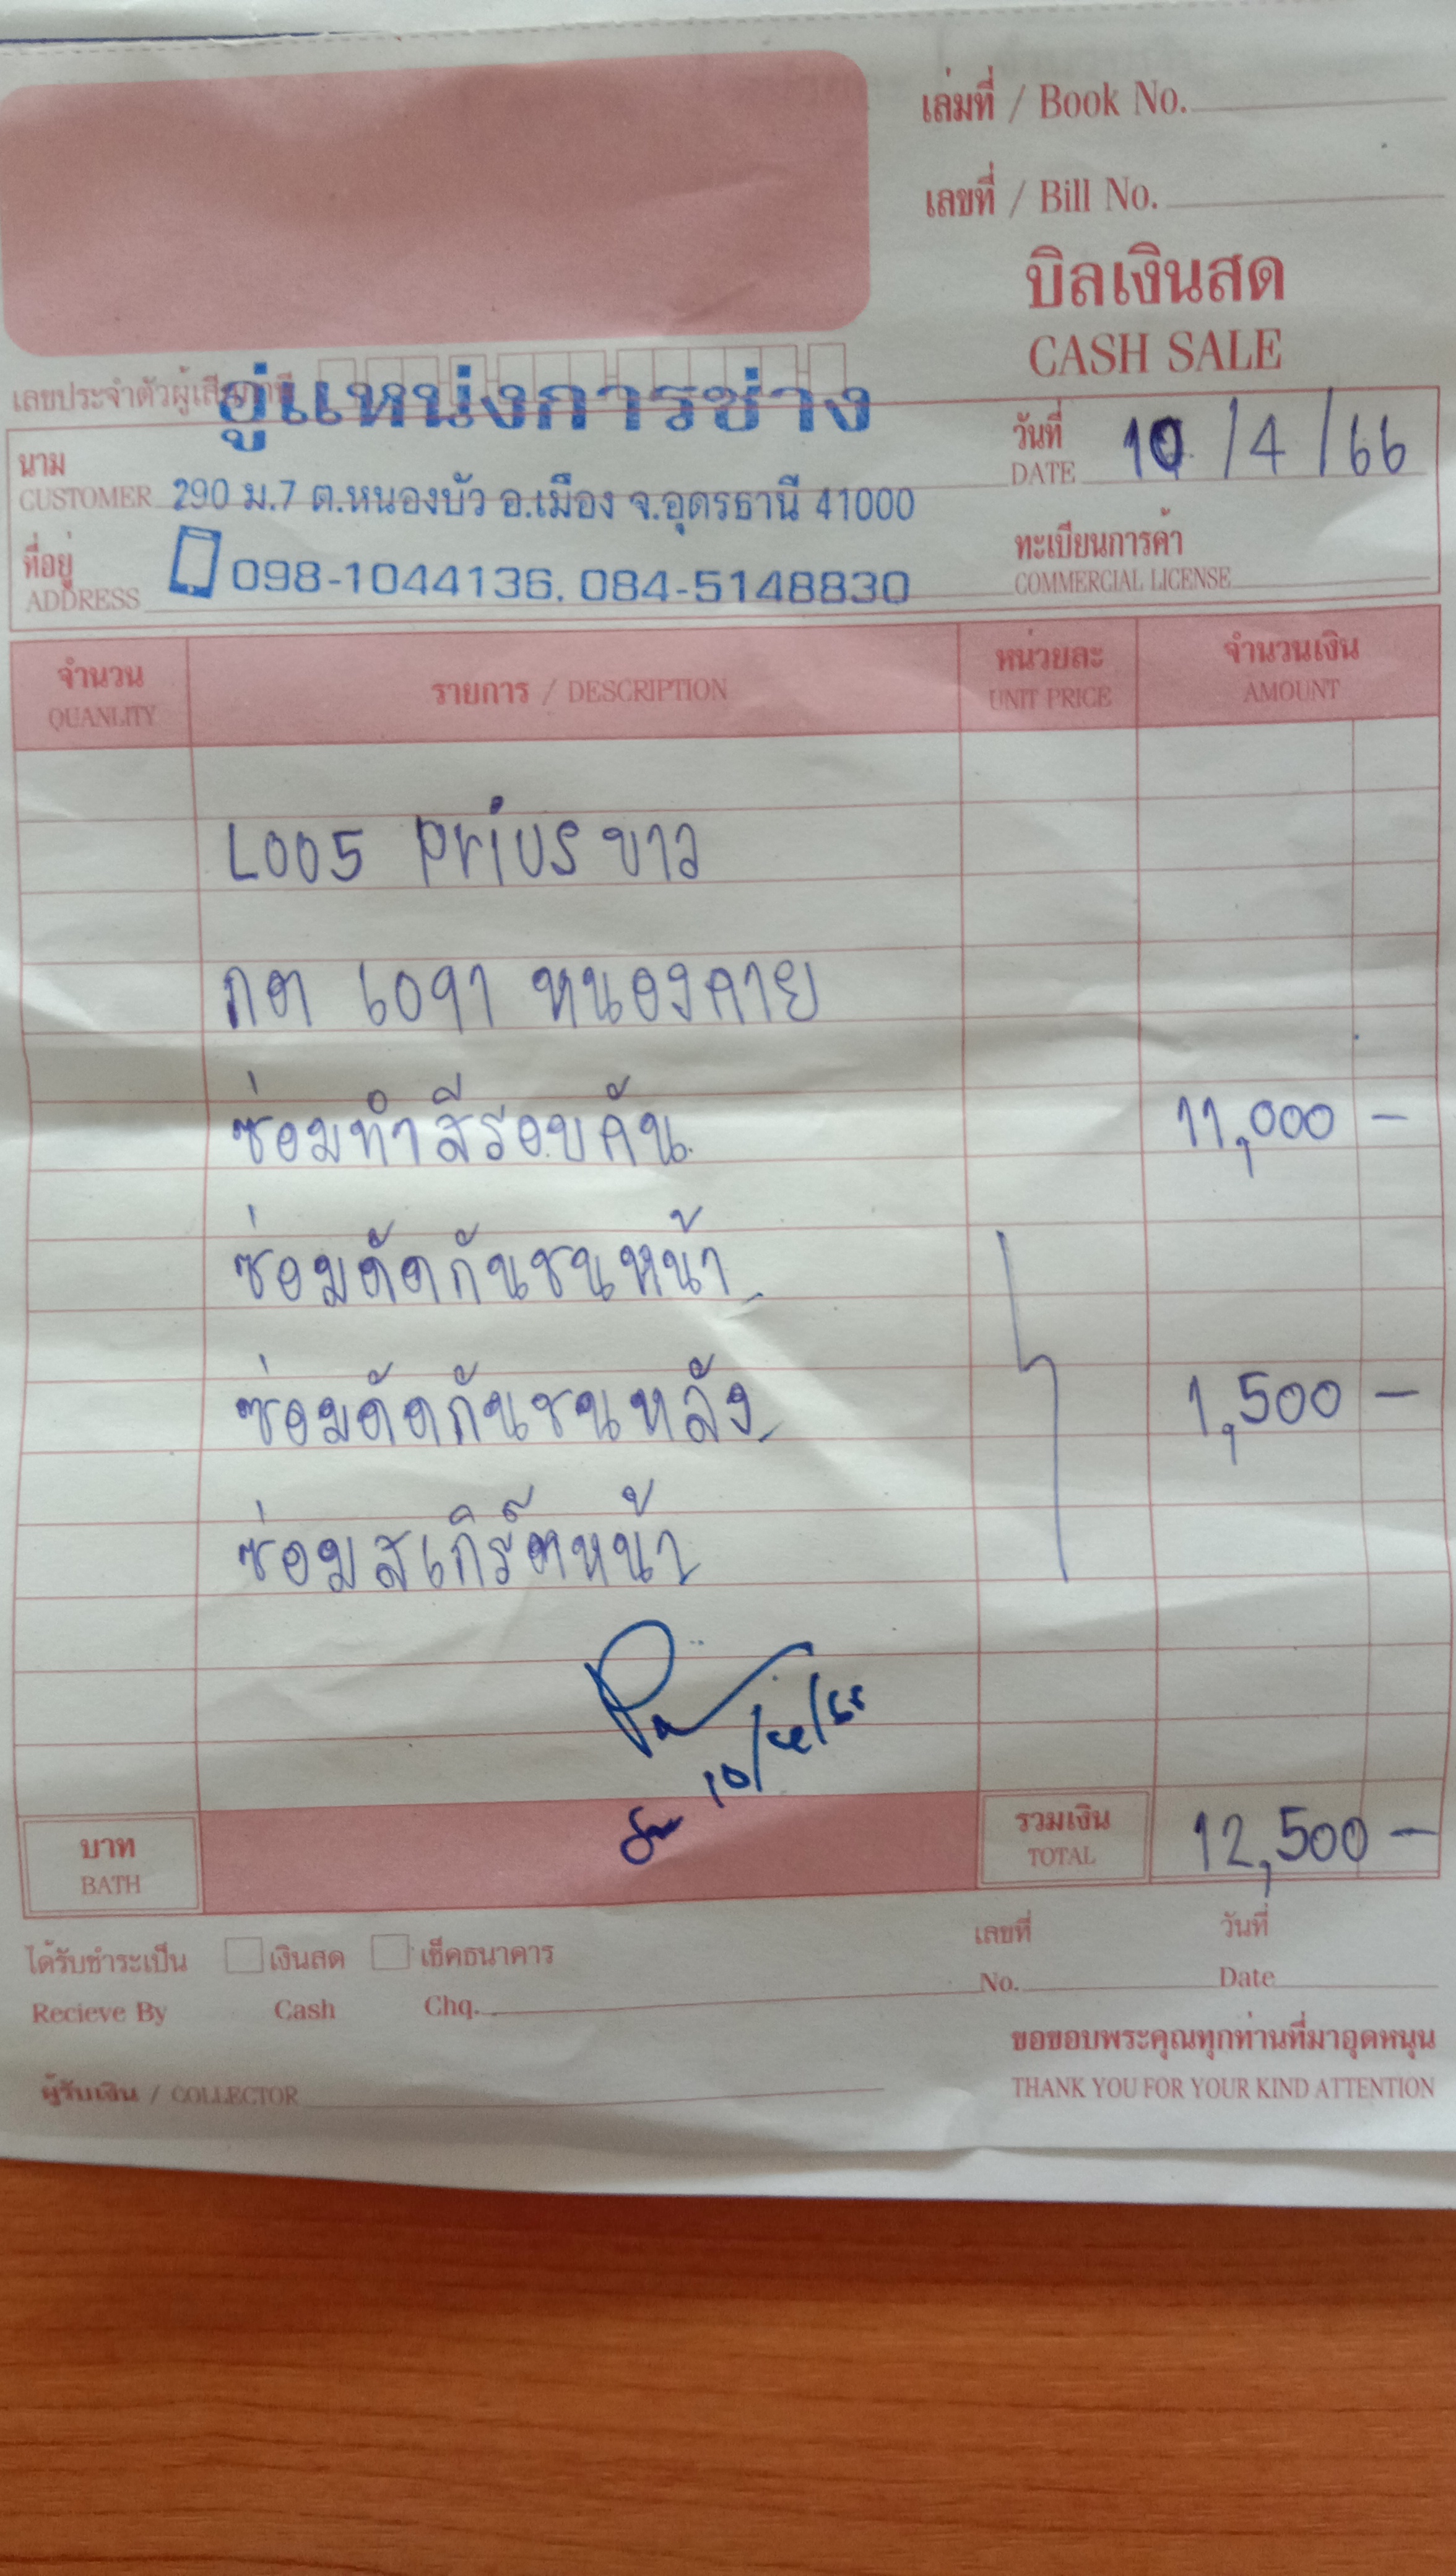 เล่มที่ / Book No.
เลขที่ / Bill No.
บิลเงินสด
CASH SALE
เลขประจำตัวผู้เสียภาษี
อู่แหน่งการช่าง
นาม
CUSTOMER
290 ม.7 ต.หนองบัว อ.เมือง จ.อุดรธานี 41000
วันที่
DATE
10/4/66
ที่อยู่
ADDRESS
098-1044136, 084-5148830
ทะเบียนการค้า
COMMERCIAL LICENSE
จำนวน รายการ / DESCRIPTION หน่วยละ จำนวนเงิน
QUANLITY UNIT PRICE AMOUNT
L005 Prius ขาว
กต 6097 หนองคาย
ซ่อมทำสีรอบคัน 11,000 -
ซ่อมดัดกันชนหน้า
ซ่อมดัดกันชนหลัง 1,500 -
ซ่อมสเกิร์ตหน้า
บาท
BATH
รวมเงิน
TOTAL
12,500 -
ได้รับชำระเป็น เงินสด เช็คธนาคาร เลขที่ วันที่
Recieve By Cash Chq. No. Date
ขอขอบพระคุณทุกท่านที่มาอุดหนุน
ผู้รับเงิน / COLLECTOR THANK YOU FOR YOUR KIND ATTENTION